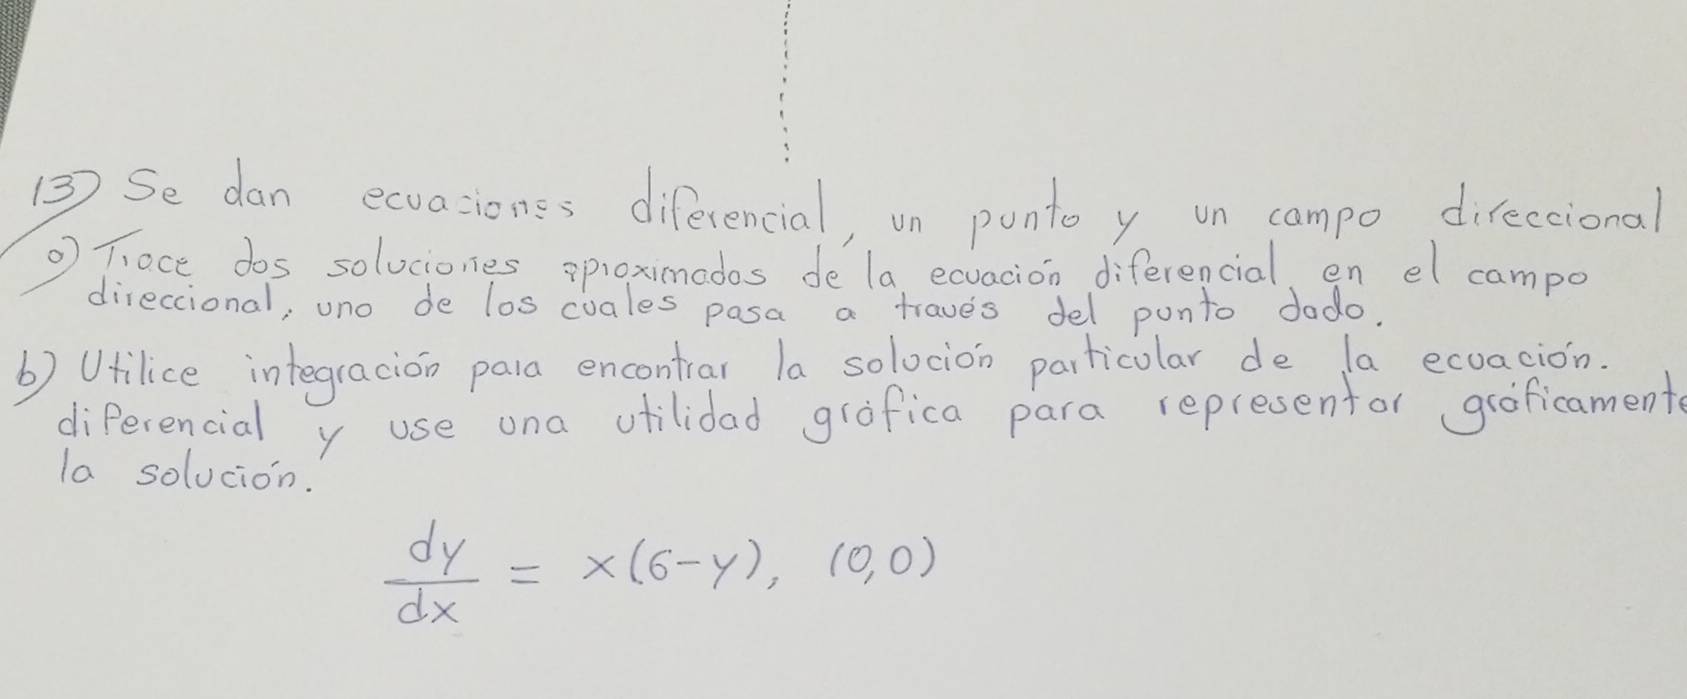 13) Se dan ecuaciones diferencial, un punto y un campo direccional
a) Trace dos soluciones aproximados de la ecuación diferencial en el campo
direccional, uno de los cuales pasa a través del punto dado.
b) Utilice integración para encontrar la solución particular de la ecuación.
diferencial y use una utilidad gráfica para representar gráficamente
la solución.
dy/dx = x(6-y), (0,0)